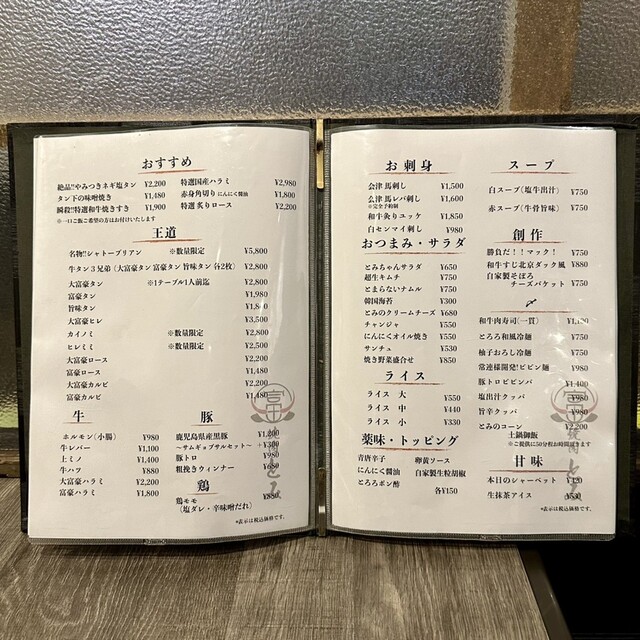 おすすめ
絶品!!やみつきネギ塩タン ¥2,200 特選国産ハラミ ¥2,980
タン下の味噌焼き ¥1,480 赤身角切り にんにく醤油 ¥1,800
瞬殺!!特選和牛焼きすき ¥1,900 特選 炙りロース ¥2,200
※一口ご飯ご希望の方はお付けいたします
王道
名物!!シャトーブリアン ※数量限定 ¥5,800
牛タン3兄弟(大富豪タン 富豪タン 旨味タン 各2枚) ¥2,800
大富豪タン ※1テーブル1人前迄 ¥2,200
富豪タン ¥1,980
旨味タン ¥1,800
大富豪ヒレ ¥3,500
カイノミ ※数量限定 ¥2,800
ヒレミミ ※数量限定 ¥2,500
大富豪ロース ¥2,200
富豪ロース ¥1,480
大富豪カルビ ¥2,200
富豪カルビ ¥1,480
牛
ホルモン(小腸) ¥980
牛レバー ¥1,100
上ミノ ¥1,400
牛ハツ ¥880
大富豪ハラミ ¥2,200
富豪ハラミ ¥1,800
豚
鹿児島県産黒豚 ¥1,200
〜サムギョプサルセット〜 +¥300
豚トロ ¥980
粗挽きウィンナー ¥680
鶏
鶏モモ ¥880
(塩ダレ・辛味噌だれ)
*表示は税込価格です。
お刺身
会津 馬刺し ¥1,500
会津 馬レバ刺し ¥1,600
※完全予約制
和牛炙りユッケ ¥1,850
白センマイ刺し ¥980
おつまみ・サラダ
とみちゃんサラダ ¥650
超生キムチ ¥750
とまらないナムル ¥750
韓国海苔 ¥300
とみのクリームチーズ ¥680
チャンジャ ¥550
にんにくオイル焼き ¥550
サンチュ ¥530
焼き野菜盛合せ ¥850
ライス
ライス 大 ¥550
ライス 中 ¥440
ライス 小 ¥330
薬味・トッピング
青唐辛子 卵黄ソース
にんにく醤油 自家製生粒胡椒
とろろポン酢 各¥150
スープ
白スープ(塩牛出汁) ¥750
赤スープ(牛骨旨味) ¥750
創作
勝負だ!!マック! ¥750
和牛すじ北京ダック風 ¥880
自家製そぼろ
チーズバケット ¥750
〆
和牛肉寿司(一貫)
とろろ和風冷麺 ¥750
柚子おろし冷麺 ¥750
常連様開発!ビビン麺 ¥980
豚トロビビンバ ¥1,400
塩出汁クッパ ¥980
旨辛クッパ ¥980
とみのコーン ¥2,200
土鍋御飯
※ご提供に50分程お時間頂きます
甘味
本日のシャーベット
生抹茶アイス
*表示は税込価格です。